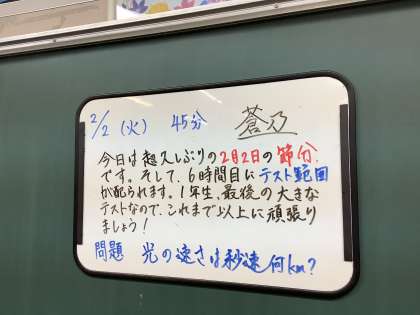 2/2 (火) 45分 蒼乃
今日は超久しぶりの2月2日の節分
です。そして、6時間目にテスト範囲
が配られます。1年生、最後の大きな
テストなので、これまで以上に頑張り
ましょう！
問題 光の速さは秒速何km?